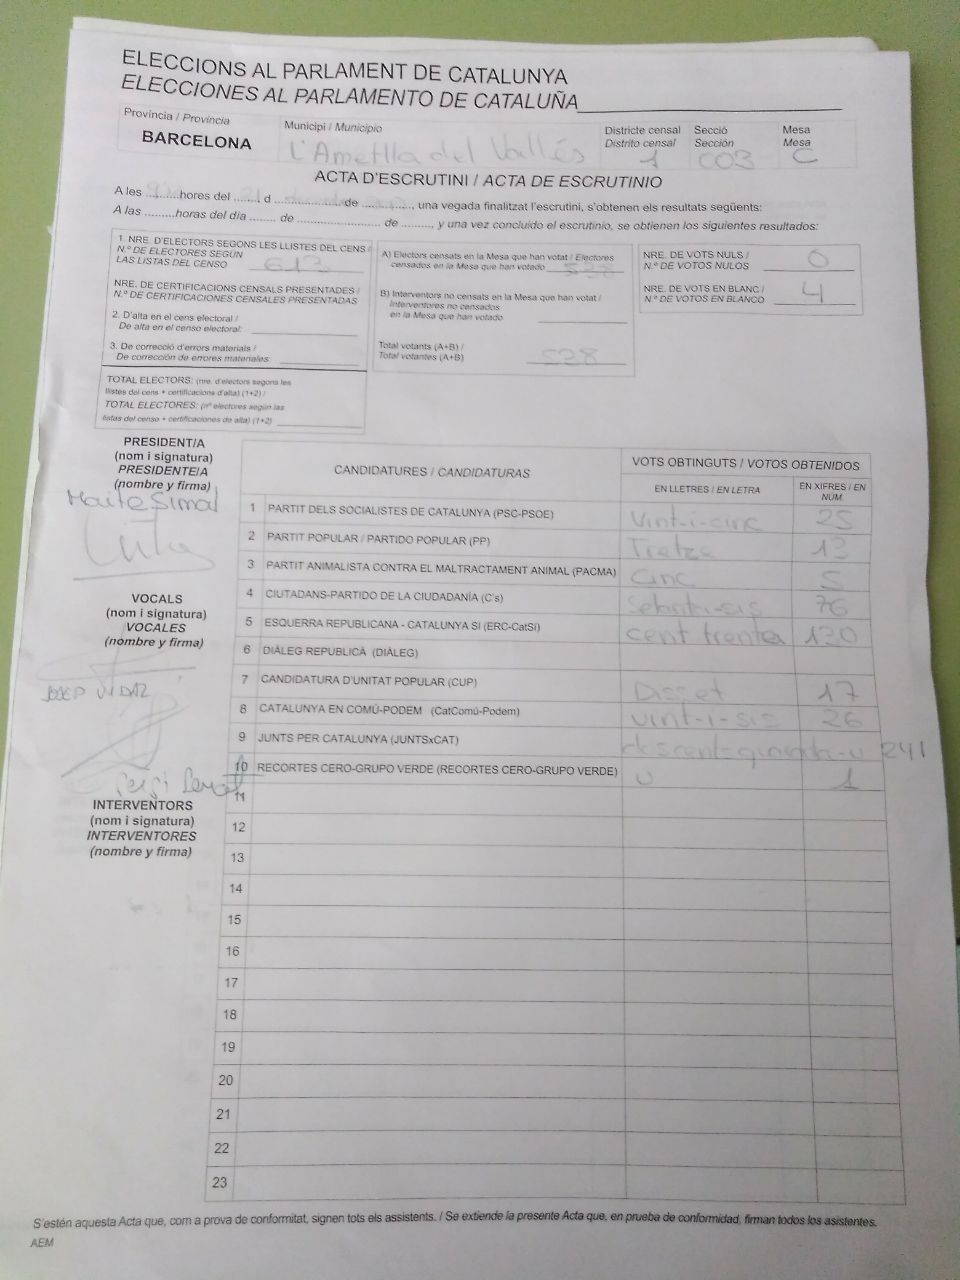 ELECCIONS AL PARLAMENT DE CATALUNYA
ELECCIONES AL PARLAMENTO DE CATALUÑA
Província / Provincia
BARCELONA
Municipi / Municipio
L'Ametlla del Vallés
Districte censal
Distrito censal
1
Secció
Sección
003
Mesa
Mesa
C
ACTA D'ESCRUTINI / ACTA DE ESCRUTINIO
A les ..........hores del ........ d ....................de .............., una vegada finalitzat l'escrutini, s'obtenen els resultats següents:
A las .........horas del día ........ de ........................ de .........., y una vez concluido el escrutinio, se obtienen los siguientes resultados:
1. NRE. D'ELECTORS SEGONS LES LLISTES DEL CENS /
N.º DE ELECTORES SEGÚN
LAS LISTAS DEL CENSO 613
NRE. DE CERTIFICACIONS CENSALS PRESENTADES /
N.º DE CERTIFICACIONES CENSALES PRESENTADAS
2. D'alta en el cens electoral /
De alta en el censo electoral:
3. De correcció d'errors materials /
De corrección de errores materiales:
TOTAL ELECTORS: (nre. d'electors segons les
llistes del cens + certificacions d'alta) (1+2) /
TOTAL ELECTORES: (nº electores según las
listas del censo + certificaciones de alta) (1+2)
A) Electors censats en la Mesa que han votat / Electores
censados en la Mesa que han votado 538
B) Interventors no censats en la Mesa que han votat /
Interventores no censados
en la Mesa que han votado
Total votants (A+B) /
Total votantes (A+B) 538
NRE. DE VOTS NULS /
N.º DE VOTOS NULOS 0
NRE. DE VOTS EN BLANC /
N.º DE VOTOS EN BLANCO 4
PRESIDENT/A
(nom i signatura)
PRESIDENTE/A
(nombre y firma)
Maite Simal
VOCALS
(nom i signatura)
VOCALES
(nombre y firma)
JOSEP
Sergi
INTERVENTORS
(nom i signatura)
INTERVENTORES
(nombre y firma)
CANDIDATURES / CANDIDATURAS
VOTS OBTINGUTS / VOTOS OBTENIDOS
EN LLETRES / EN LETRA
EN XIFRES / EN NÚM.
1 PARTIT DELS SOCIALISTES DE CATALUNYA (PSC-PSOE) Vint-i-cinc 25
2 PARTIT POPULAR / PARTIDO POPULAR (PP) Tretze 13
3 PARTIT ANIMALISTA CONTRA EL MALTRACTAMENT ANIMAL (PACMA) Cinc 5
4 CIUTADANS-PARTIDO DE LA CIUDADANÍA (C's) Setanti-sis 76
5 ESQUERRA REPUBLICANA - CATALUNYA SÍ (ERC-CatSí) cent trenta 130
6 DIÀLEG REPUBLICÀ (DIÀLEG)
7 CANDIDATURA D'UNITAT POPULAR (CUP) Disset 17
8 CATALUNYA EN COMÚ-PODEM (CatComú-Podem) vint-i-sis 26
9 JUNTS PER CATALUNYA (JUNTSxCAT) 241
10 RECORTES CERO-GRUPO VERDE (RECORTES CERO-GRUPO VERDE) u 1
11
12
13
14
15
16
17
18
19
20
21
22
23
S'estén aquesta Acta que, com a prova de conformitat, signen tots els assistents. / Se extiende la presente Acta que, en prueba de conformidad, firman todos los asistentes.
AEM